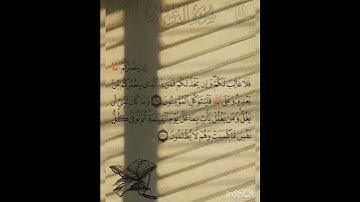 إِن يَنصُرْكُمُ ٱللَّهُ
فَلَا غَالِبَ لَكُمْ وَإِن يَخْذُلْكُمْ فَمَن ذَا ٱلَّذِى يَنصُرُكُم مِّنۢ
بَعْدِهِۦ وَعَلَى ٱللَّهِ فَلْيَتَوَكَّلِ ٱلْمُؤْمِنُونَ وَمَا كَانَ لِنَبِىٍّ أَن
يَغُلَّ وَمَن يَغْلُلْ يَأْتِ بِمَا غَلَّ يَوْمَ ٱلْقِيَـٰمَةِ ثُمَّ تُوَفَّىٰ كُلُّ
نَفْسٍ مَّا كَسَبَتْ وَهُمْ لَا يُظْلَمُونَ
InShOt